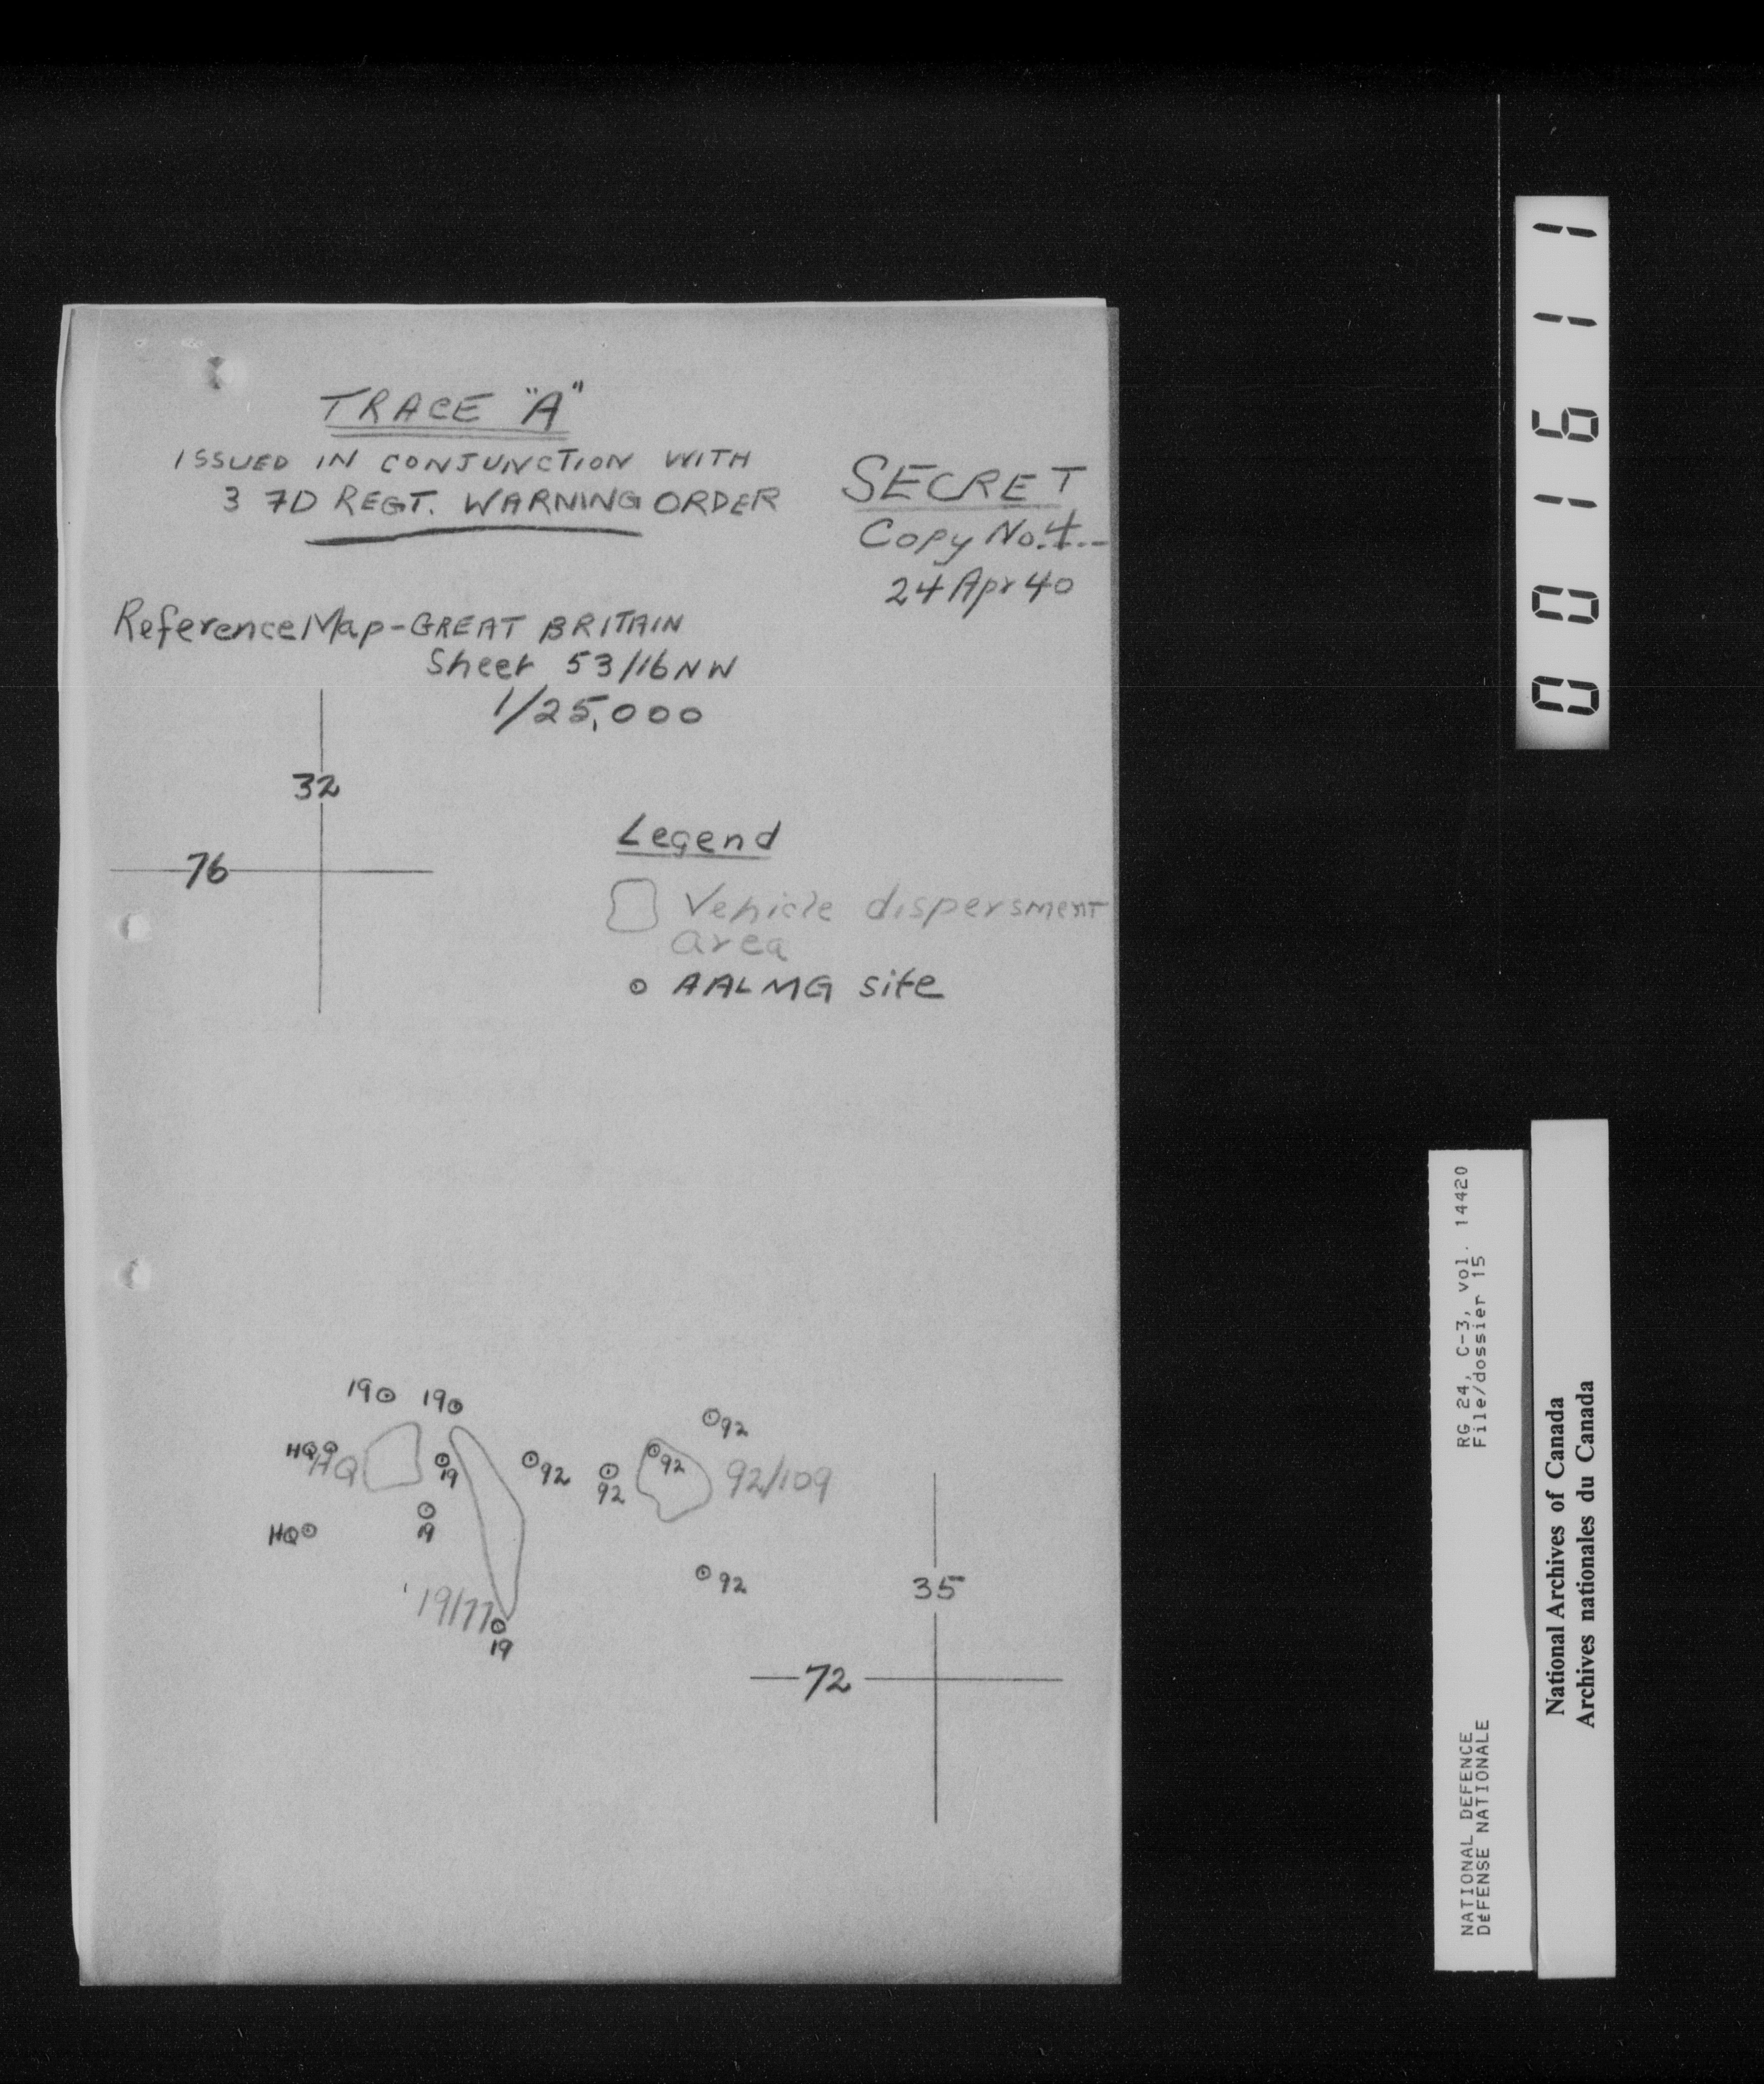 TRACE "A"
ISSUED IN CONJUNCTION WITH
3 7D REGT. WARNING ORDER
SECRET
Copy No. 4
24 Apr 40
Reference Map - GREAT BRITAIN
Sheet 53/16 NW
1/25,000
32
76
Legend
Vehicle dispersment
area
AALMG site
19
19
92
HQ
HQ
19
92
92
92
92/109
HQ
19
92
19/77
19
35
72
001611
RG 24, C-3, vol. 14420
File/dossier 15
NATIONAL DEFENCE
DÉFENSE NATIONALE
National Archives of Canada
Archives nationales du Canada